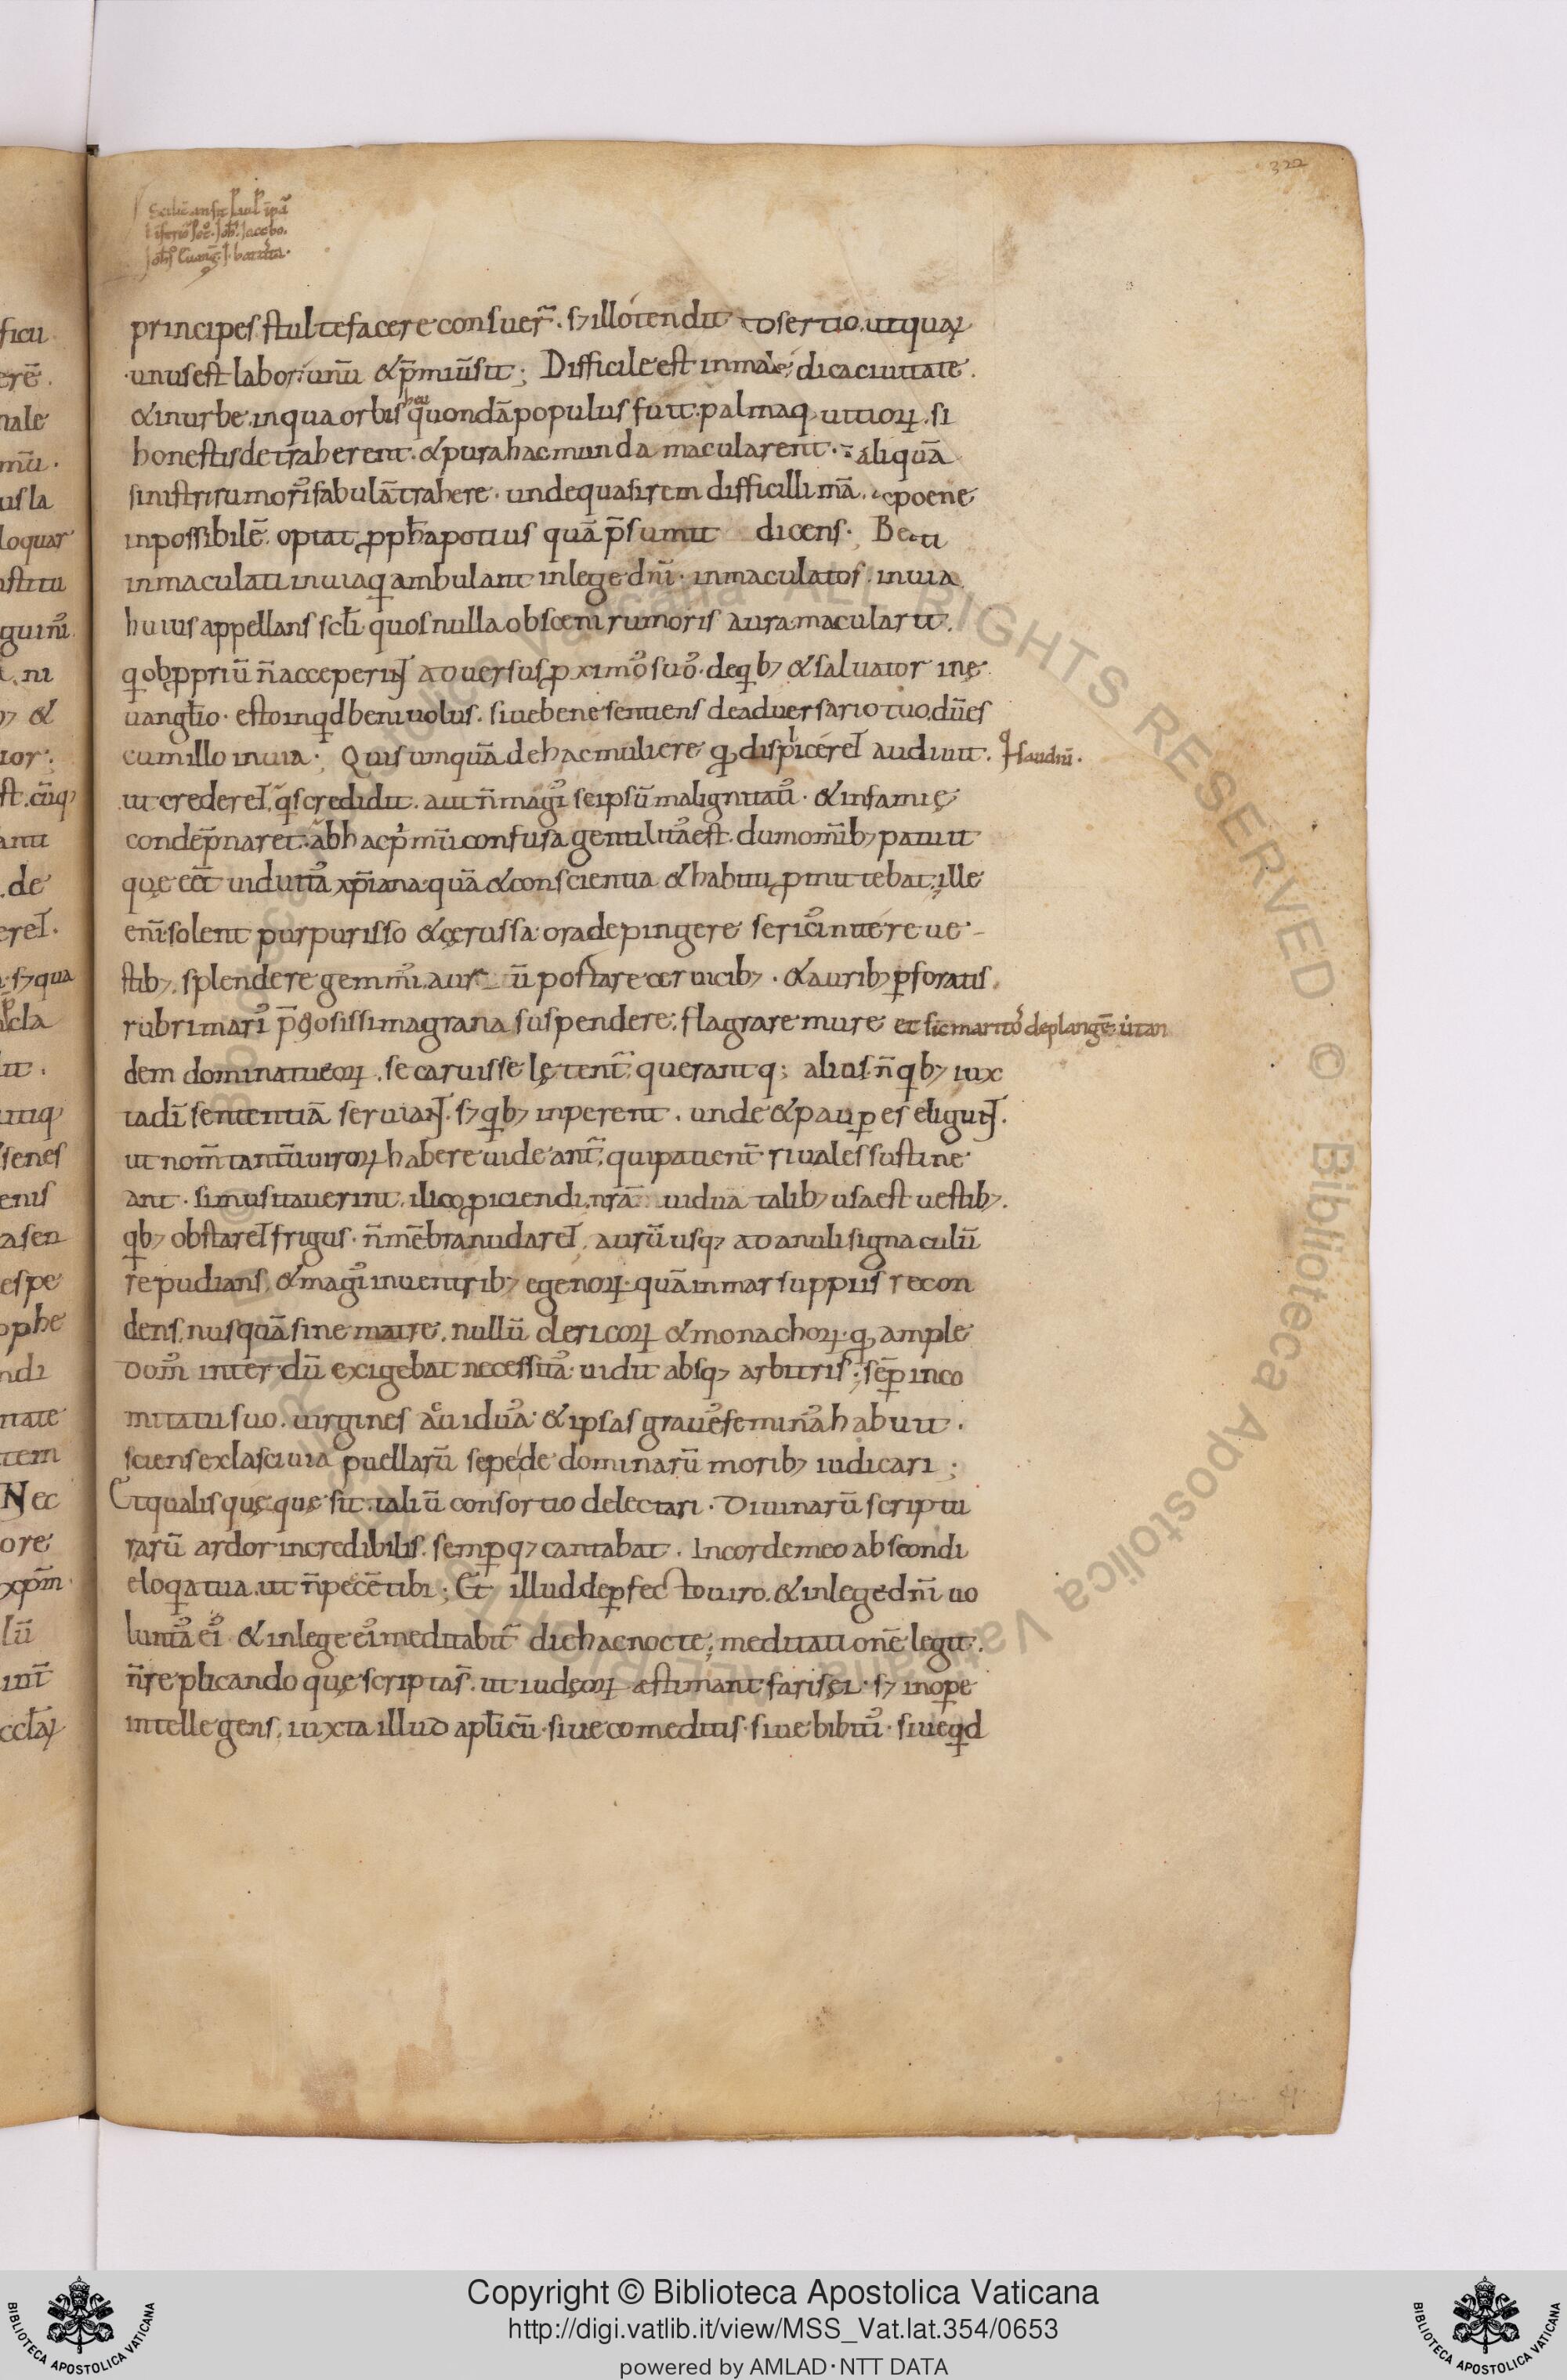 322
principes stulte facere consuer̃. s; illo tendit disertio. ut quaꝝ
unus est labor. unũ & p̃miũ sit; Difficile est in maledica ciuitate.
& in urbe in qua orbis quondã populus fuit. palmaq; uitioꝝ. si
honestis detraherent. & pura hac munda macularent. ñ aliquã
sinistri rumoris fabulã trahere. unde quasi rem difficillimã. ac poene
inpossibilẽ. optat ꝓph̃a potius quã p̃sumit dicens. Beati
inmaculati in uia q̃ ambulant in lege dñi. inmaculatos. in uia
huius appellans sc̃li quos nulla obsceni rumoris aura macularit.
q̃ obꝓpriũ ñ acceperint aduersus ꝓximos suos. de qb; & saluator in ę
uangl̃io. esto inqd beniuolus. siue bene sentiens de aduersario tuo. dũ es
cum illo in uia; Quis umquã de hac muliere qđ displiceret audiuit.
ut crederet. qs credidit. aut ñ magis seipsũ malignitatis. & infamię
condep̃naret. ab hac p'mũ confusa gentilitas est. dum omĩb; patuit
quę eẽt uiduitas xp̃iana. quã & conscientia & habitu ꝓmittebat. ille
eñi solent purpurisso & cęrussa ora depingere sericis nitere ue-
stib;. splendere gemmis. aurũ portare ceruicib;. & aurib; ꝑforatis.
rubri maris p̃tiosissima grana suspendere. flagrare mure et sic maritos deplangẽ. ut tan
dem dominatu eoꝝ. se caruisse lętent̃. querantq; alios. ñ qb; iux
ta dĩ sententiã seruiant. s; qb; inperent. unde & pauꝑes eligunt.
ut nom̃ tantũ uiroꝝ habere uideant̃. qui patient̃ riuales sustine
ant. si musitauerint. ilico ꝓiciendi. nr̃a uidua talib; usa est uestib;.
qb; obstaret frigus. ñ mẽbra nudaret. aurũ usq; ad anuli signaculũ
repudians. & magis in uentrib; egenoꝝ. quã in marsuppiis recon
dens. nusquã sine matre. nullũ clericoꝝ & monachoꝝ. qđ ample
domus interdũ exigebat necessitas. uidit absq; arbitris. semꝑ in co
mitatu suo. uirgines ac uiduas. & ipsas graues feminas habuit.
sciens ex lasciuia puellarũ sepe de dominarũ morib; iudicari;
Et qualis quęque sit. taliũ consortio delectari. Diuinarũ scriptu
rarũ ardor incredibilis. semꝑq; cantabat. In corde meo abscondi
eloq̃a tua. ut ñ peccẽ tibi; Et illud de ꝑfecto uiro. & in lege dñi uo
luntas eius & in lege eius meditabit̃ die hac nocte. meditationẽ legit.
ñ replicando quę scripta s̃. ut iudęoꝝ æstimant farisęi. s; in oꝑe
intellegens. iuxta illud apl̃icũ. siue comeditis. siue bibitis. siue qd
Copyright © Biblioteca Apostolica Vaticana
http://digi.vatlib.it/view/MSS_Vat.lat.354/0653
powered by AMLAD·NTT DATA